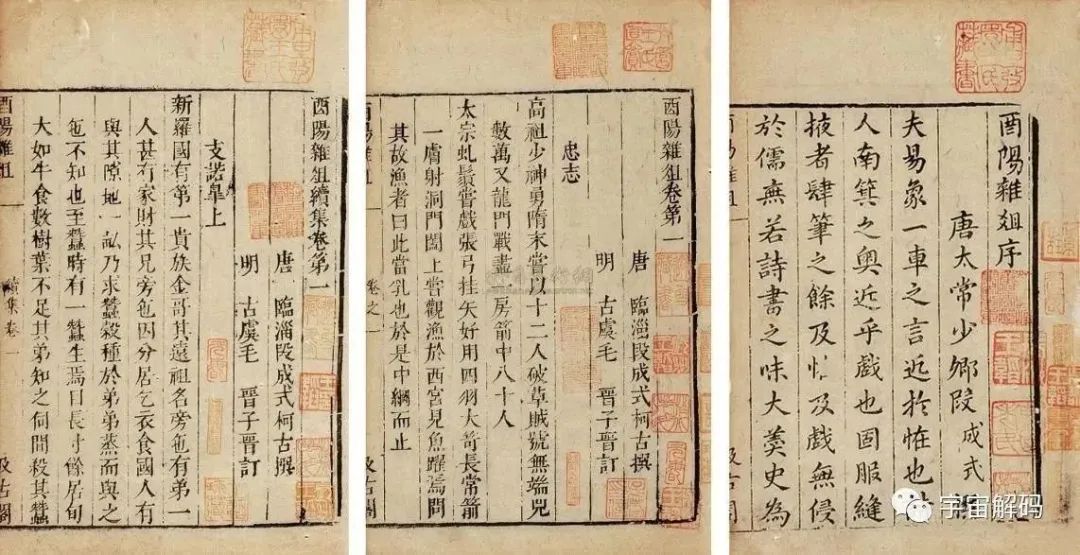 酉陽雜俎序
唐太常少卿段成式
夫易象一車之言近於怪也
人南箕之奥近乎戲也固服縫
掖者肆筆之餘及怪及戲無侵
於儒無若詩書之味大羹史為
酉陽雜俎卷第一
唐 臨淄段成式柯古撰
明 古虞毛 晉子晉訂
忠志
高祖少神勇隋末嘗以十二人破草賊號無端兒
數萬又龍門戰盡一房箭中八十人
太宗虬鬚嘗戲張弓挂矢好用四羽大箭長常箭
一膚射洞門闔上嘗觀漁於西宮見魚躍焉問
其故漁者曰此當乳也於是中網而止
卷之一
酉陽雜俎續集卷第一
唐 臨淄段成式柯古撰
明 古虞毛 晉子晉訂
支諾臯上
新羅國有第一貴族金哥其遠祖名旁㐌有弟一
人甚有家財其兄旁㐌因分居乞衣食國人有
與其隙地一畝乃求蠶穀種於弟弟蒸而與之
㐌不知也至蠶時有一蠶生焉日長寸餘居旬
大如牛食數樹葉不足其弟知之伺間殺其蠶
酉陽雜俎
續集卷一
汲古閣
宇宙解码